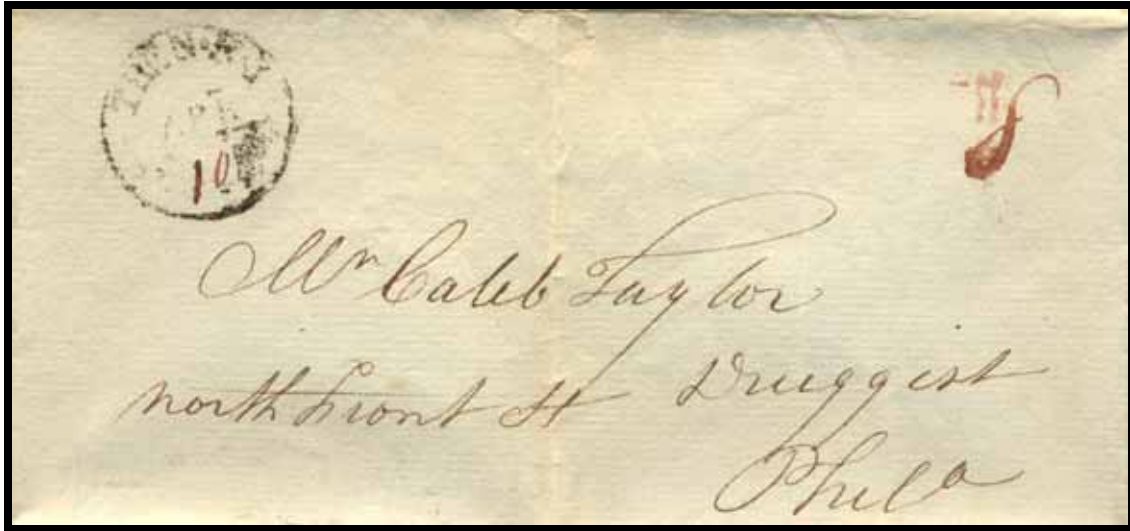 10
Mr Caleb Taylor
north Front St Druggist
Phila